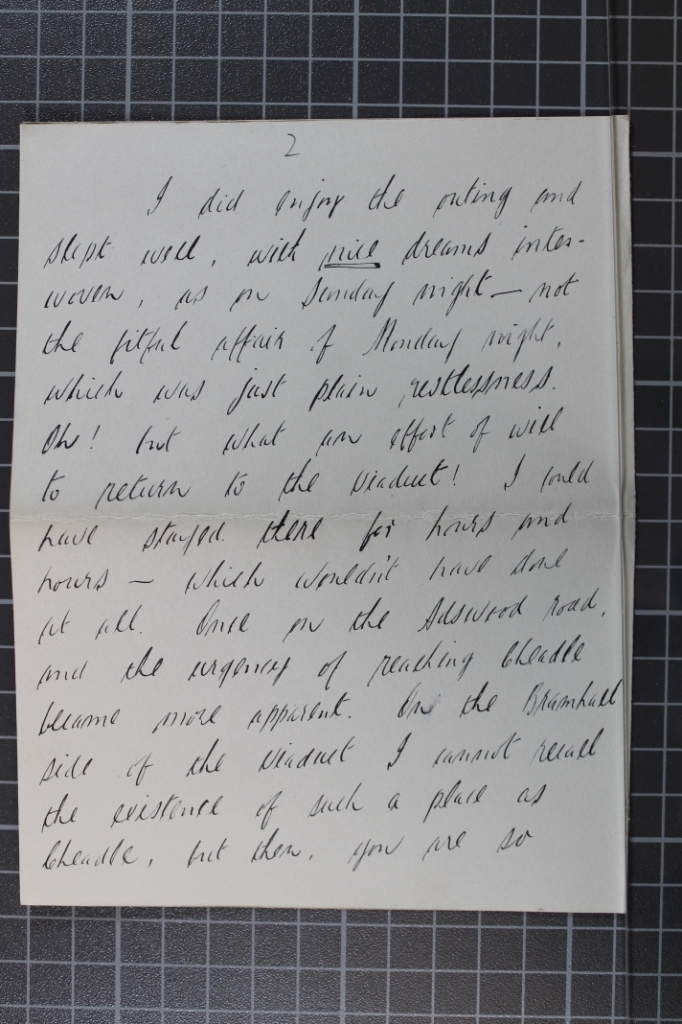 2
I did enjoy the outing and
slept well, with nice dreams inter-
woven, as on Sunday night — not
the fitful affair of Monday night,
which was just plain restlessness.
Oh! but what an effort of will
to return to the viaduct! I could
have stayed there for hours and
hours — which wouldn't have done
at all. Once on the Adswood road,
and the urgency of reaching Cheadle
became more apparent. On the Bramhall
side of the viaduct I cannot recall
the existence of such a place as
Cheadle, but then, you are so